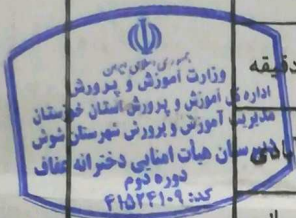 جمهوری اسلامی ایران
وزارت آموزش و پرورش
اداره کل آموزش و پرورش استان خوزستان
مدیریت آموزش و پرورش شهرستان شوش
دبیرستان هیأت امنایی دخترانه عفاف
دوره دوم
کد: ۴۱۵۲۴۱۰۹
دقیقه